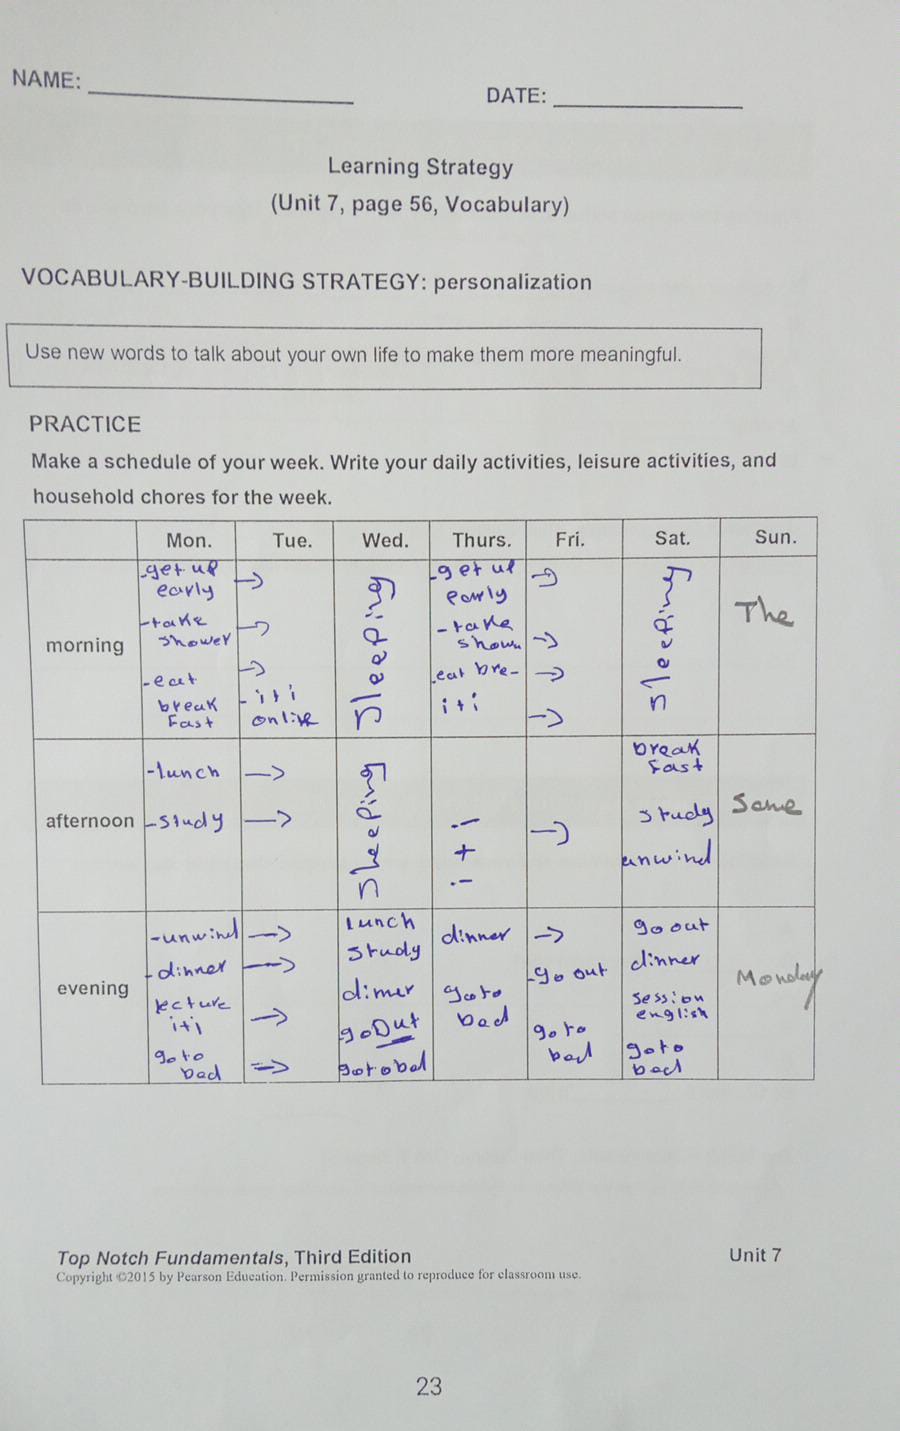 NAME: ____________ DATE: ____________
Learning Strategy
(Unit 7, page 56, Vocabulary)
VOCABULARY-BUILDING STRATEGY: personalization
Use new words to talk about your own life to make them more meaningful.
PRACTICE
Make a schedule of your week. Write your daily activities, leisure activities, and
household chores for the week.
Mon. Tue. Wed. Thurs. Fri. Sat. Sun.
morning
-get up
early
-take
shower
-eat
break
Fast
→
→
→
- iti
online
sleeping
-get up
early
-take
show
-eat bre-
iti
→
→
→
→
sleeping
The
afternoon
-lunch
-study
→
→
sleeping
iti
→
break
fast
study
unwind
Same
evening
-unwind
-dinner
lecture
iti
go to
bad
→
→
→
→
lunch
study
dinner
go Out
go to bad
dinner
go to
bad
→
-go out
go to
bad
go out
dinner
session
english
go to
bad
Monday
Top Notch Fundamentals, Third Edition Unit 7
Copyright ©2015 by Pearson Education. Permission granted to reproduce for classroom use.
23